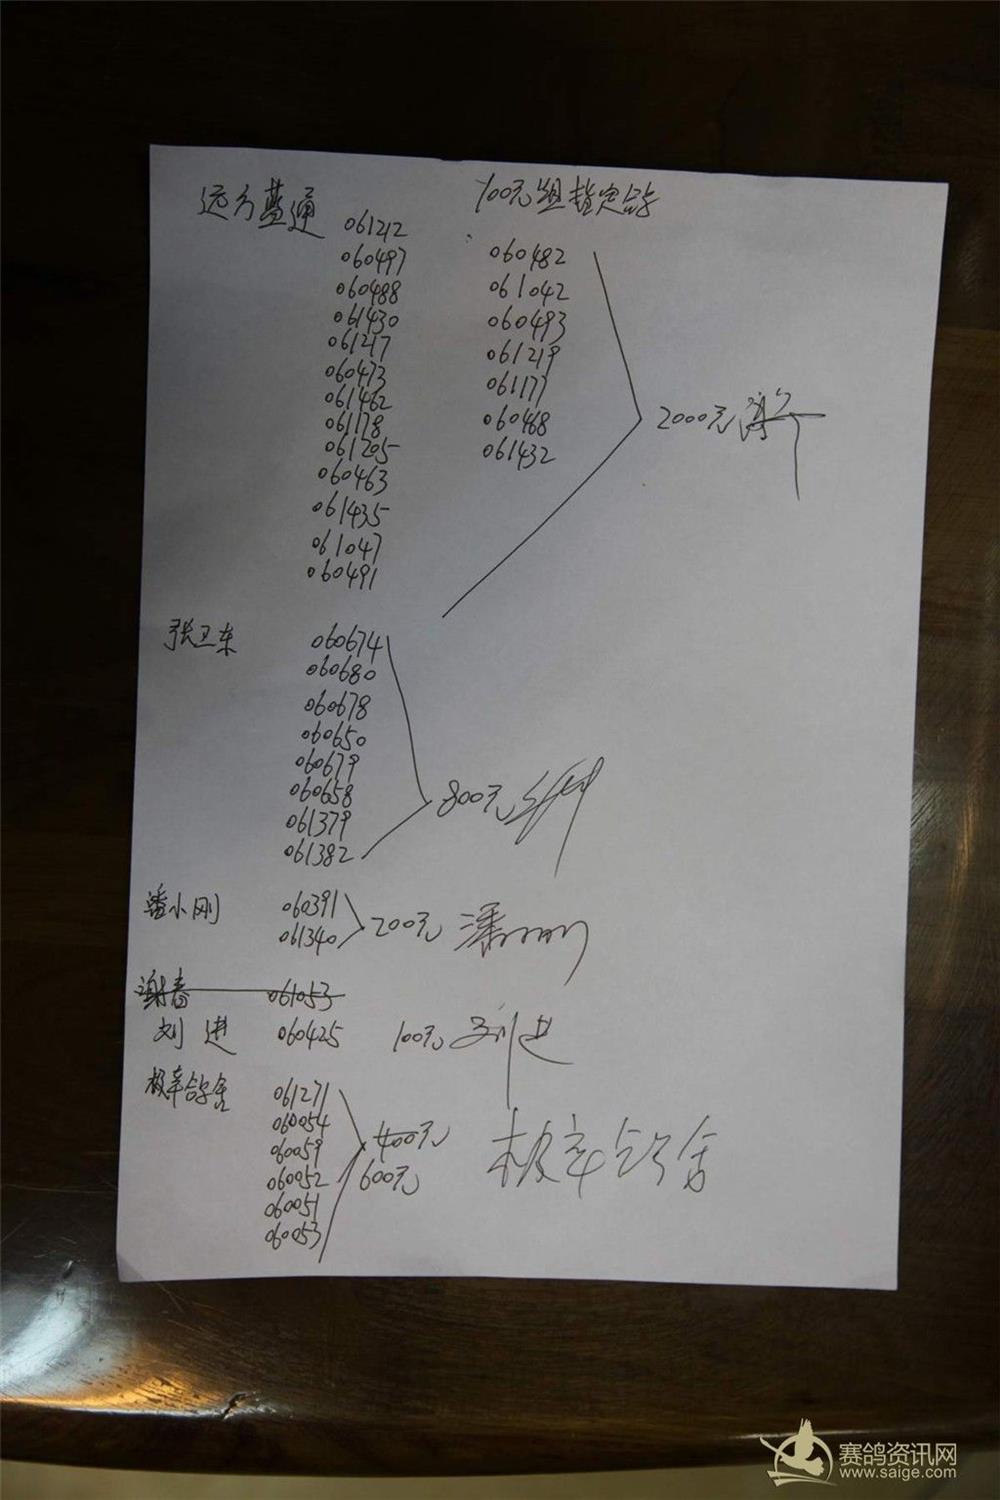 100元组指定鸽
远方基通 061212
060497 060482
060488 061042
061430 060493
061217 061219
060473 061177
061462 060468
061178 061432
061205
060463
061435
061047
060491
2000元
张卫东 060674
060680
060678
060650
060679
060658
061379
061382
800元
潘小刚 060391
061340
200元 潘小刚
谢春 061053
刘进 060425 100元 刘进
极幸鸽舍 061271
060054
060059
060052
060051
060053
400元
600元
极幸鸽舍
赛鸽资讯网
www.saige.com